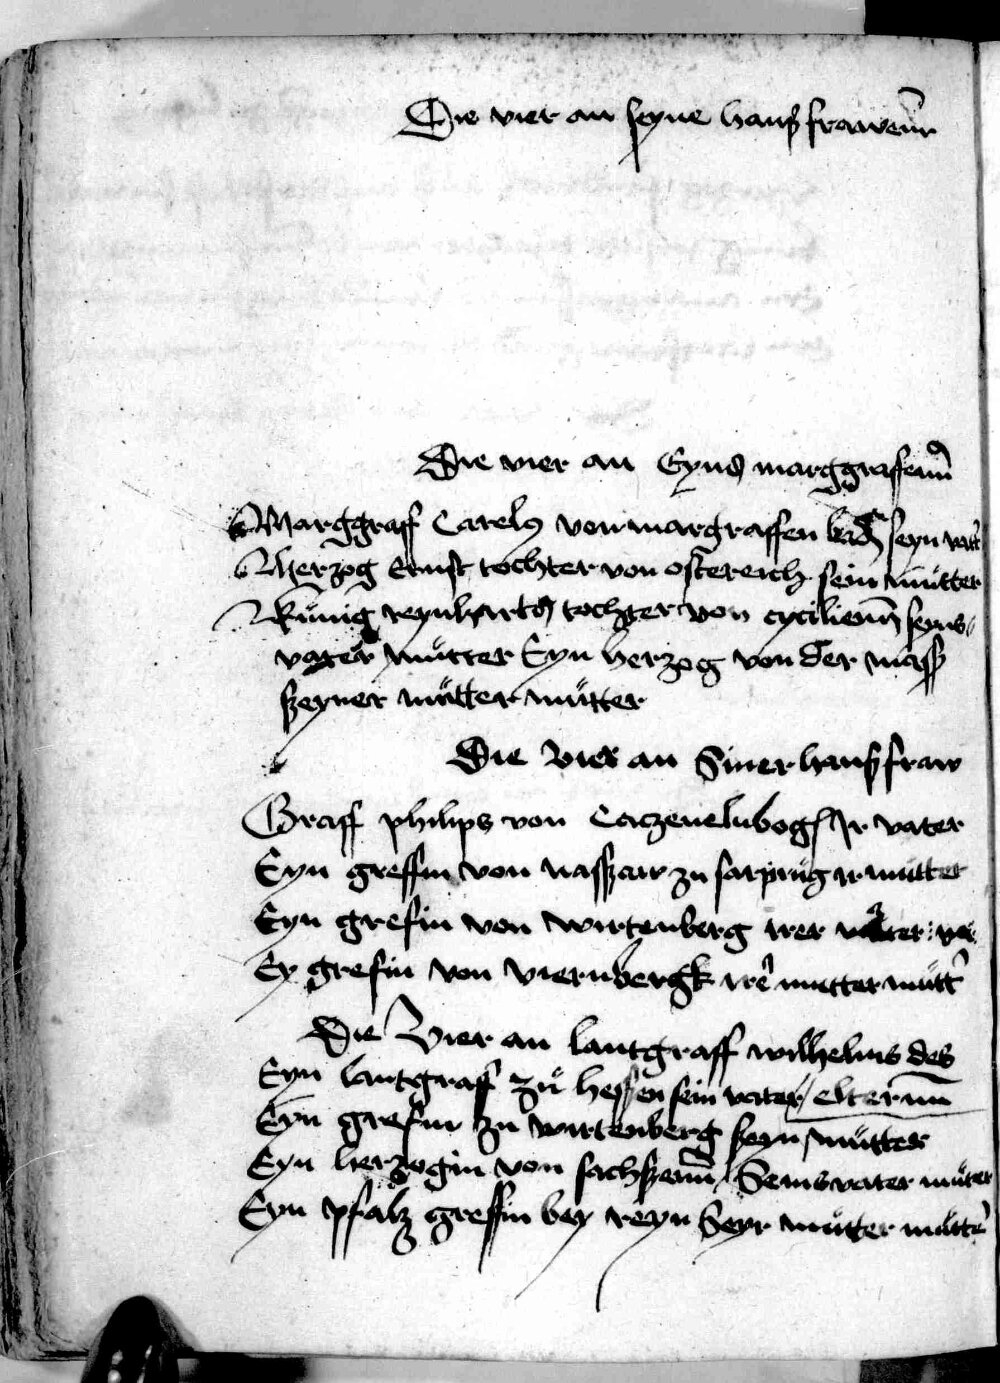 Die vier an seyne hausfrawenn
Die vier an Eyns marggraffenn
Marggraff Carels von margraffen seyn vater
Herzog Ernst tochter von ostereich sein mutter
Kunig reynharts tochter von cycilienn seyns
vater mutter Eyn herzog von der mass
seyner mutter mutter
Die vier an Siner hausfraw
Graff philips von Caczenelnbogen Ir vater
Eyn greffin von nasszaw zu sarprug ir mutter
Eyn grefin von wirtenberg irer vater
Ey grefin von viernbergk irer mutter mutter
Die Vier an lantgraff wilhelms des
Eyn lantgraf zu hessen sein vater / elternn
Eyn grefin zu wirtenberg seyn mutter
Eyn herzogin von sachssenn Seins vater muter
Eyn pfalz greffin bey reyn Seyr mutter mutter